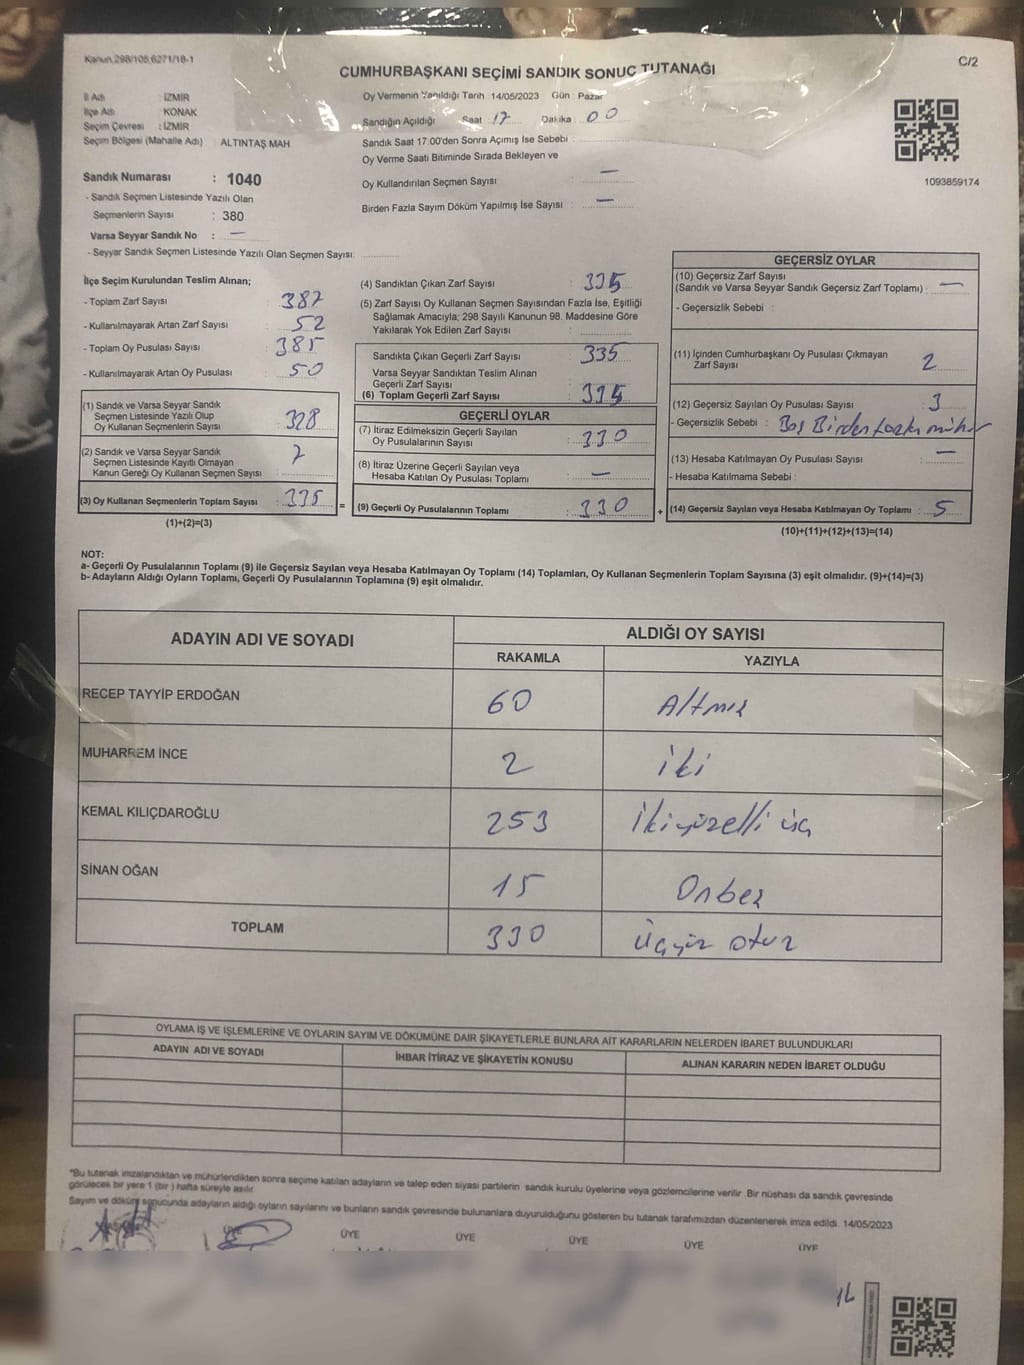 Kanun.298/105,6271/18-1
C/2
CUMHURBAŞKANI SEÇİMİ SANDIK SONUÇ TUTANAĞI
İl Adı : İZMİR
İlçe Adı : KONAK
Seçim Çevresi : İZMİR
Seçim Bölgesi (Mahalle Adı) : ALTINTAŞ MAH.
Oy Vermenin Yapıldığı Tarih :14/05/2023 Gün : Pazar
Sandığın Açıldığı Saat : 17 Dakika : 00
Sandık Saat 17:00'den Sonra Açımış İse Sebebi :
Oy Verme Saati Bitiminde Sırada Bekleyen ve
Oy Kullandırılan Seçmen Sayısı : —
Birden Fazla Sayım Döküm Yapılmış İse Sayısı : —
1093859174
Sandık Numarası : 1040
- Sandık Seçmen Listesinde Yazılı Olan
Seçmenlerin Sayısı : 380
Varsa Seyyar Sandık No : —
- Seyyar Sandık Seçmen Listesinde Yazılı Olan Seçmen Sayısı:
İlçe Seçim Kurulundan Teslim Alınan;
- Toplam Zarf Sayısı : 387
- Kullanılmayarak Artan Zarf Sayısı : 52
- Toplam Oy Pusulası Sayısı : 385
- Kullanılmayarak Artan Oy Pusulası : 50
(1) Sandık ve Varsa Seyyar Sandık
Seçmen Listesinde Yazılı Olup
Oy Kullanan Seçmenlerin Sayısı : 328
(2) Sandık ve Varsa Seyyar Sandık
Seçmen Listesinde Kayıtlı Olmayan
Kanun Gereği Oy Kullanan Seçmen Sayısı : 7
(3) Oy Kullanan Seçmenlerin Toplam Sayısı : 335 =
(1)+(2)=(3)
(4) Sandıktan Çıkan Zarf Sayısı : 335
(5) Zarf Sayısı Oy Kullanan Seçmen Sayısından Fazla İse, Eşitliği
Sağlamak Amacıyla; 298 Sayılı Kanunun 98. Maddesine Göre
Yakılarak Yok Edilen Zarf Sayısı :
Sandıkta Çıkan Geçerli Zarf Sayısı : 335
Varsa Seyyar Sandıktan Teslim Alınan
Geçerli Zarf Sayısı :
(6) Toplam Geçerli Zarf Sayısı : 335
GEÇERLİ OYLAR
(7) İtiraz Edilmeksizin Geçerli Sayılan
Oy Pusulalarının Sayısı : 330
(8) İtiraz Üzerine Geçerli Sayılan veya
Hesaba Katılan Oy Pusulası Toplamı : —
(9) Geçerli Oy Pusulalarının Toplamı : 330 +
GEÇERSİZ OYLAR
(10) Geçersiz Zarf Sayısı
(Sandık ve Varsa Seyyar Sandık Geçersiz Zarf Toplamı) : —
- Geçersizlik Sebebi :
(11) İçinden Cumhurbaşkanı Oy Pusulası Çıkmayan
Zarf Sayısı : 2
(12) Geçersiz Sayılan Oy Pusulası Sayısı : 3
- Geçersizlik Sebebi : Boş Birden fazla mühür
(13) Hesaba Katılmayan Oy Pusulası Sayısı : —
- Hesaba Katılmama Sebebi :
(14) Geçersiz Sayılan veya Hesaba Katılmayan Oy Toplamı : 5
(10)+(11)+(12)+(13)=(14)
NOT:
a- Geçerli Oy Pusulalarının Toplamı (9) ile Geçersiz Sayılan veya Hesaba Katılmayan Oy Toplamı (14) Toplamları, Oy Kullanan Seçmenlerin Toplam Sayısına (3) eşit olmalıdır. (9)+(14)=(3)
b- Adayların Aldığı Oyların Toplamı, Geçerli Oy Pusulalarının Toplamına (9) eşit olmalıdır.
ADAYIN ADI VE SOYADI
ALDIĞI OY SAYISI
RAKAMLA YAZIYLA
RECEP TAYYİP ERDOĞAN 60 Altmış
MUHARREM İNCE 2 iki
KEMAL KILIÇDAROĞLU 253 İkiyüzelli üç
SİNAN OĞAN 15 Onbeş
TOPLAM 330 Üçyüz otuz
OYLAMA İŞ VE İŞLEMLERİNE VE OYLARIN SAYIM VE DÖKÜMÜNE DAİR ŞİKAYETLERLE BUNLARA AİT KARARLARIN NELERDEN İBARET BULUNDUKLARI
ADAYIN ADI VE SOYADI İHBAR İTİRAZ VE ŞİKAYETİN KONUSU ALINAN KARARIN NEDEN İBARET OLDUĞU
*Bu tutanak imzalandıktan ve mühürlendikten sonra seçime katılan adayların ve talep eden siyasi partilerin sandık kurulu üyelerine veya gözlemcilerine verilir. Bir nüshası da sandık çevresinde
görülecek bir yere 1 (bir) hafta süreyle asılır.
Sayım ve döküm sonucunda adayların aldığı oyların sayılarını ve bunların sandık çevresinde bulunanlara duyurulduğunu gösteren bu tutanak tarafımızdan düzenlenerek imza edildi. 14/05/2023
ÜYE ÜYE ÜYE ÜYE ÜYE ÜYE